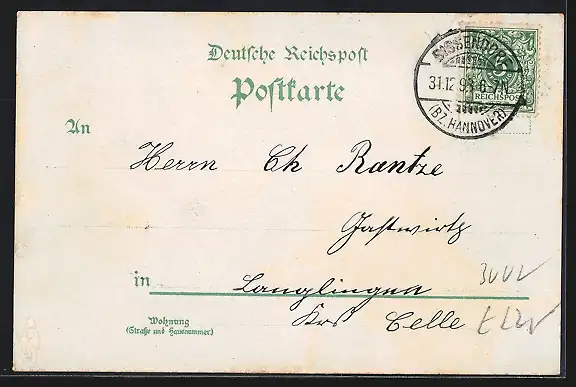 Deutsche Reichspost
Postkarte
SISSENDORF
31.12.98.6-7N.
(BZ. HANNOVER)
REICHSPOST
An
Herrn Ch Rantze
Gastwirth
in Langlingen
Krs Celle
Wohnung
(Straße und Hausnummer)